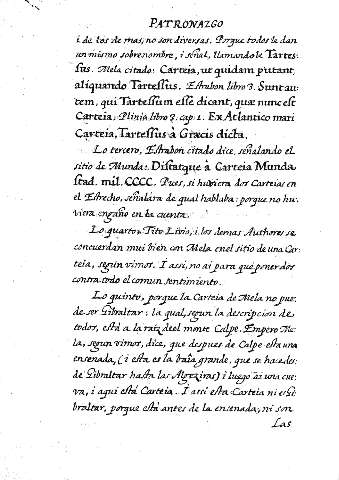 PATRONAZGO
i de los de mas, no son diversas. Porque todos le dan
un mismo sobrenombre, i señal, llamandole Tartes-
sus. Mela citado: Carteia, ut quidam putant,
aliquando Tartessus. Estrabon libro 3. Sunt au-
tem, qui Tartessum esse dicant, quæ nunc est
Carteia; Plinio libro 3. cap. 1. Ex Atlantico mari
Carteia, Tartessus à Græcis dicta.
Lo tercero, Estrabon citado dice, señalando el
sitio de Munda: Distatque à Carteia Munda
stad. mil. CCCC. Pues, si huviera dos Carteias en
el Estrecho, señalára de qual hablaba: porque no hu-
viera engaño en la cuenta.
Lo quarto, Tito Livio, i los demas Authores se
concuerdan mui bien con Mela en el sitio de una Car-
teia, segun vimos. I assi, no ai para què poner dos
contra todo el comun sentimiento.
Lo quinto, porque la Carteia de Mela no pue-
de ser Gibraltar: la qual, segun la descripcion de
todos, està a la raiz de el monte Calpe. Empero Me-
la, segun vimos, dice, que despues de Calpe esta una
ensenada, (i esta es la baìa grande, que se hace des-
de Gibraltar hasta las Algeziras) i luego ai una cue-
va, i aqui està Carteia. I assi esta Carteia ni es Gi-
braltar, porque està antes de la ensenada, ni son
Las